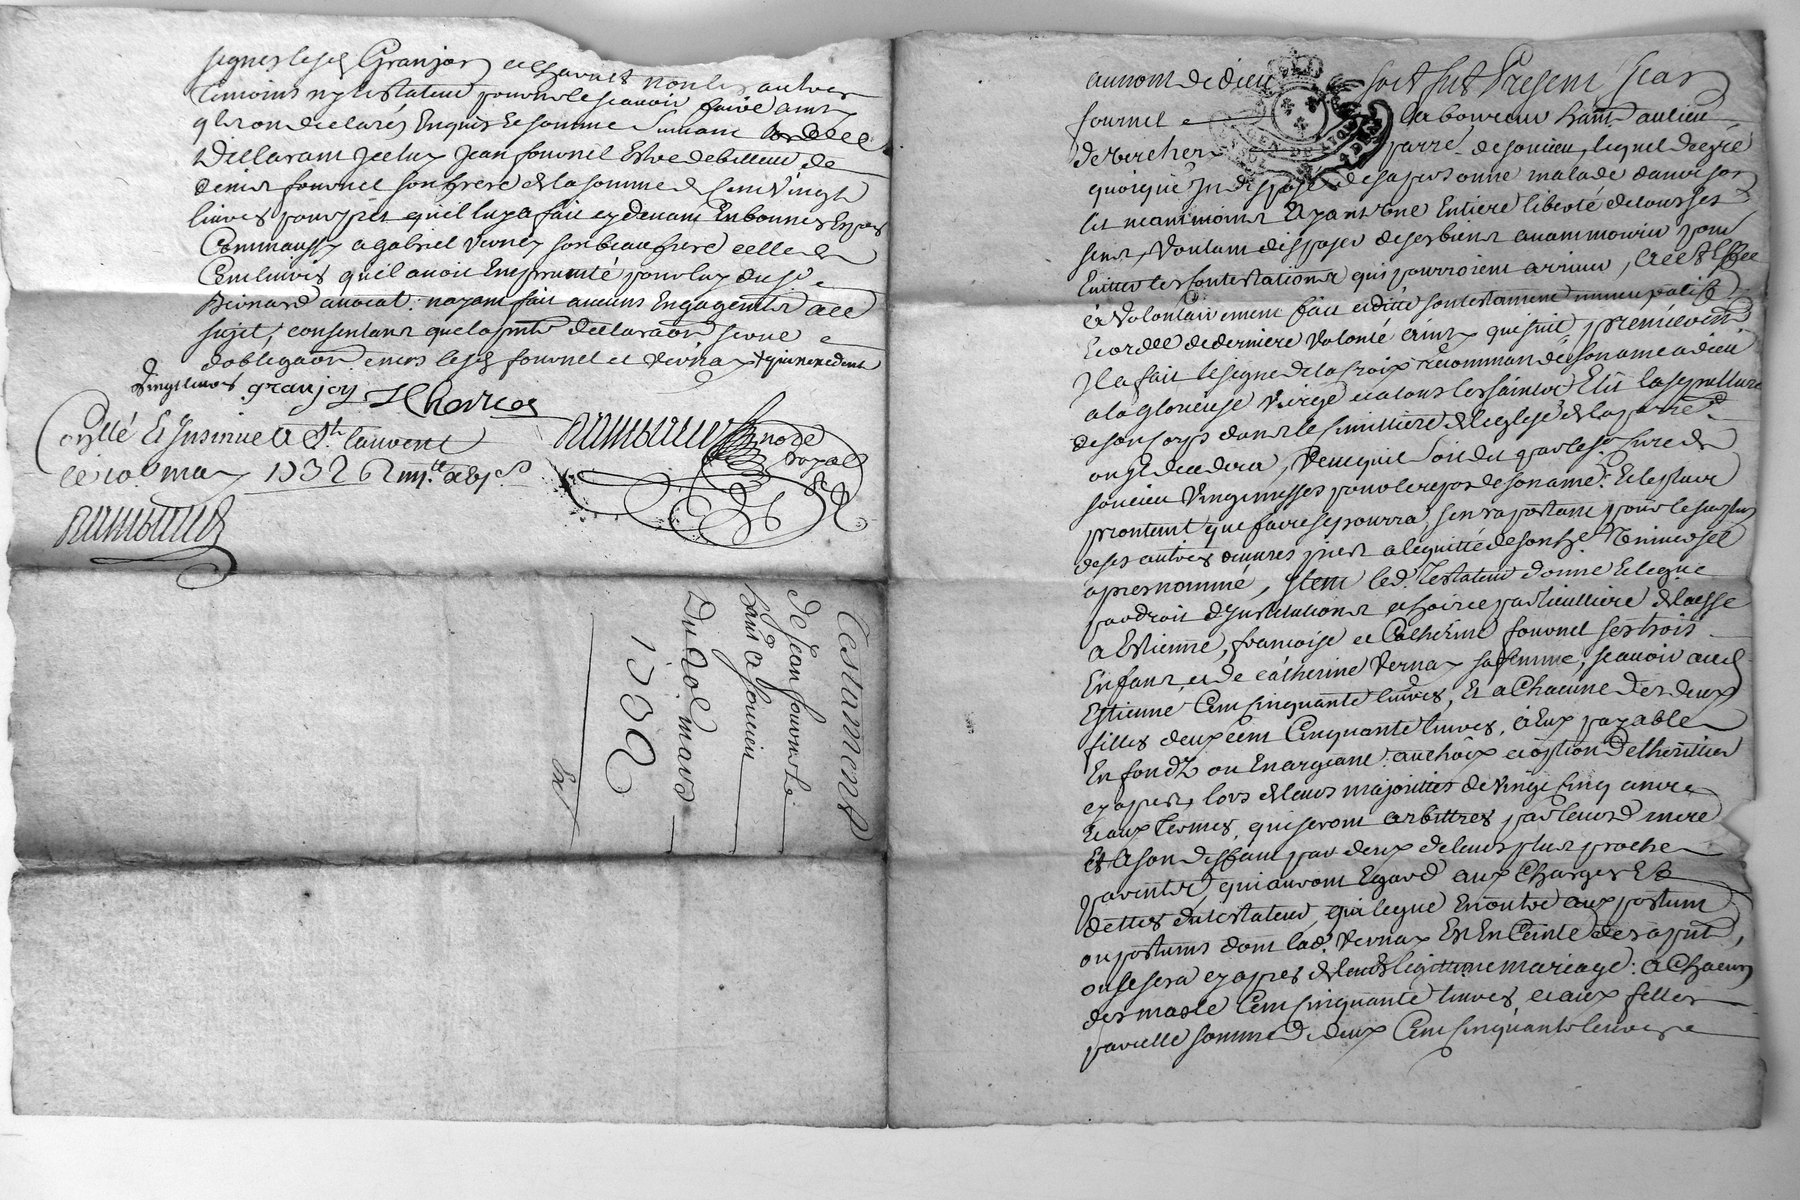 signer led Granjon
temoins ny le testateur pour ne le scavoir faire ainsy
qu'ils ont declaré, Enquis et sommé suivant
declarant icelluy Jean fournel Estre debitteur de
denis fournel son frere de la somme de Cent Vingt
livres pour prest qu'il luy a fait cy devant En bonnes Espes
Comm'aussy a gabriel Verney son beaufrere celle de
Cent livres qu'il avoit Emprunté pour luy du sr
Benard avocat: n'ayant fait aucuns Engagements a ce
sujet, consentant que la pnte declaraon serve
d'obligaon envers lesd fournel et
vingt livres granjon
Conllé Et Insinué A St. laurent
le 10e may 1732
note
Royal
Testament
de Jean fournel la
hant a soucieu
Du 20e mars
1732
Expt
au nom de dieu soit fut Present Jean
fournel laboureur hant au lieu
de verchery parre de soucieu, lequel de gré
quoique Indisposé de sa personne malade dans son
lit neantmoins Ayant Une Entiere liberté de tous ses
sens, Voulant disposer de ses biens avant mourir pour
Eviter les Contestations qui pourroient arriver, Il a de gré
et Volontairement fait et dicté son testament nuncupatif
Et ordce de derniere Volonté ainsy que suit, premierement
Il a fait le signe de la Croix recommandé son ame a dieu
a la glorieuse Vierge et a tous les saints Elit la sepulture
de son corps dans le Cimittiere de l'eglise de la parre
ou Il decedera, Veut qu'il soit dit par le sr Curé de
soucieu Vingt messes pour le repos de son ame Et le plus
prontemt que faire se pourra, s'en raportant pour le surplus
de ses autres œuvres pies a lequitté de son her Universel
apres nommé, Item led. Testateur donne Et legue
par droit d'Institution et hoirie particulliere delaisse
a Estienne, francoise et Catherine fournel ses trois
Enfans, et de Catherine Vernay sa femme, scavoir aud
Estienne Cent Cinquante livres, Et a Chacune des deux
filles deux cent Cinquante livres, a Eux payable
En fondz ou En argeant au choix et option de l'heritier
cy apres, lors de leurs majorittes de Vingt Cinq années
Et aux termes, que seront arbittres par leurd mere
Et A son deffaut par deux de leurs plus proches
parents, qui auront Egard aux Charges Et
dettes du testateur, qui legue En outre aux postum
ou postums dont lad. Vernay Est En Ceinte des a pnt,
ou se sera cy apres de leurd legittime mariage: a Chacun
des masle Cent Cinquante livres et aux filles
pareille somme de deux Cent Cinquante livres